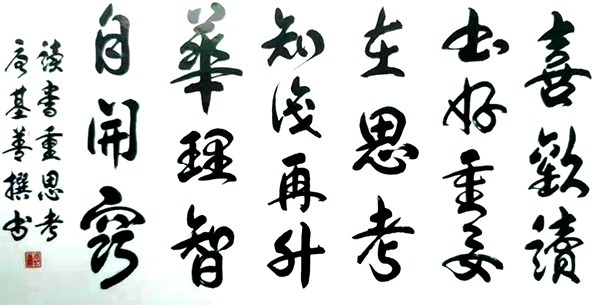 喜歡讀
书好重要
在思考
知識再升
華理智
自開竅
讀書重思考
基善撰书